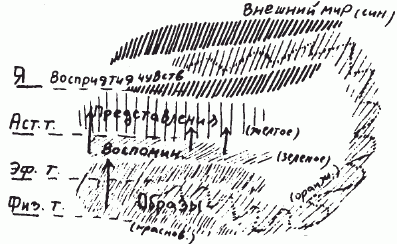 Внешний мир (син)
Я Восприятия чувств
Представления
Аст. т. (желтое)
Воспомин. (зеленое)
Эф. т. (оранж.)
Физ. т. Образы
(краснов.)